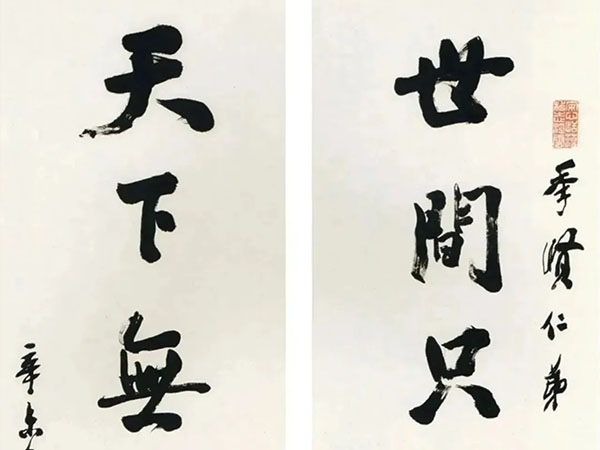 季賢仁弟
世間只
天下無
辛未